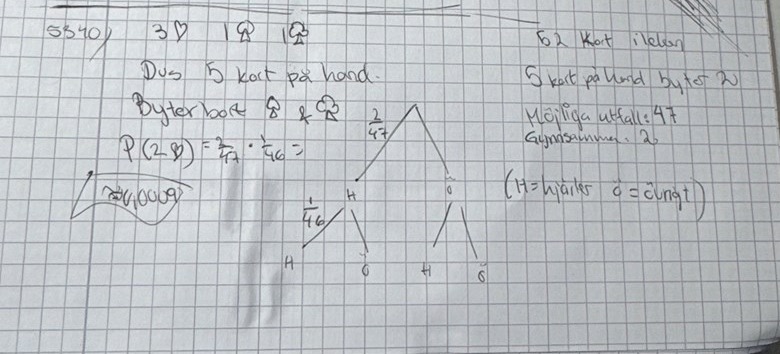 5340) 3♡ 1♣ 1♣
Dvs 5 kort på hand.
Byter bort ♣ & ♣
P(2♡) = 2/47 · 1/46 =
≈0,0009
52 kort i leken
5 kort på hand byter 2
Möjliga utfall: 47
Gynnsamma: 2
(H=hjärter ö=övrigt)
2/47
H ö
1/46
H ö H ö